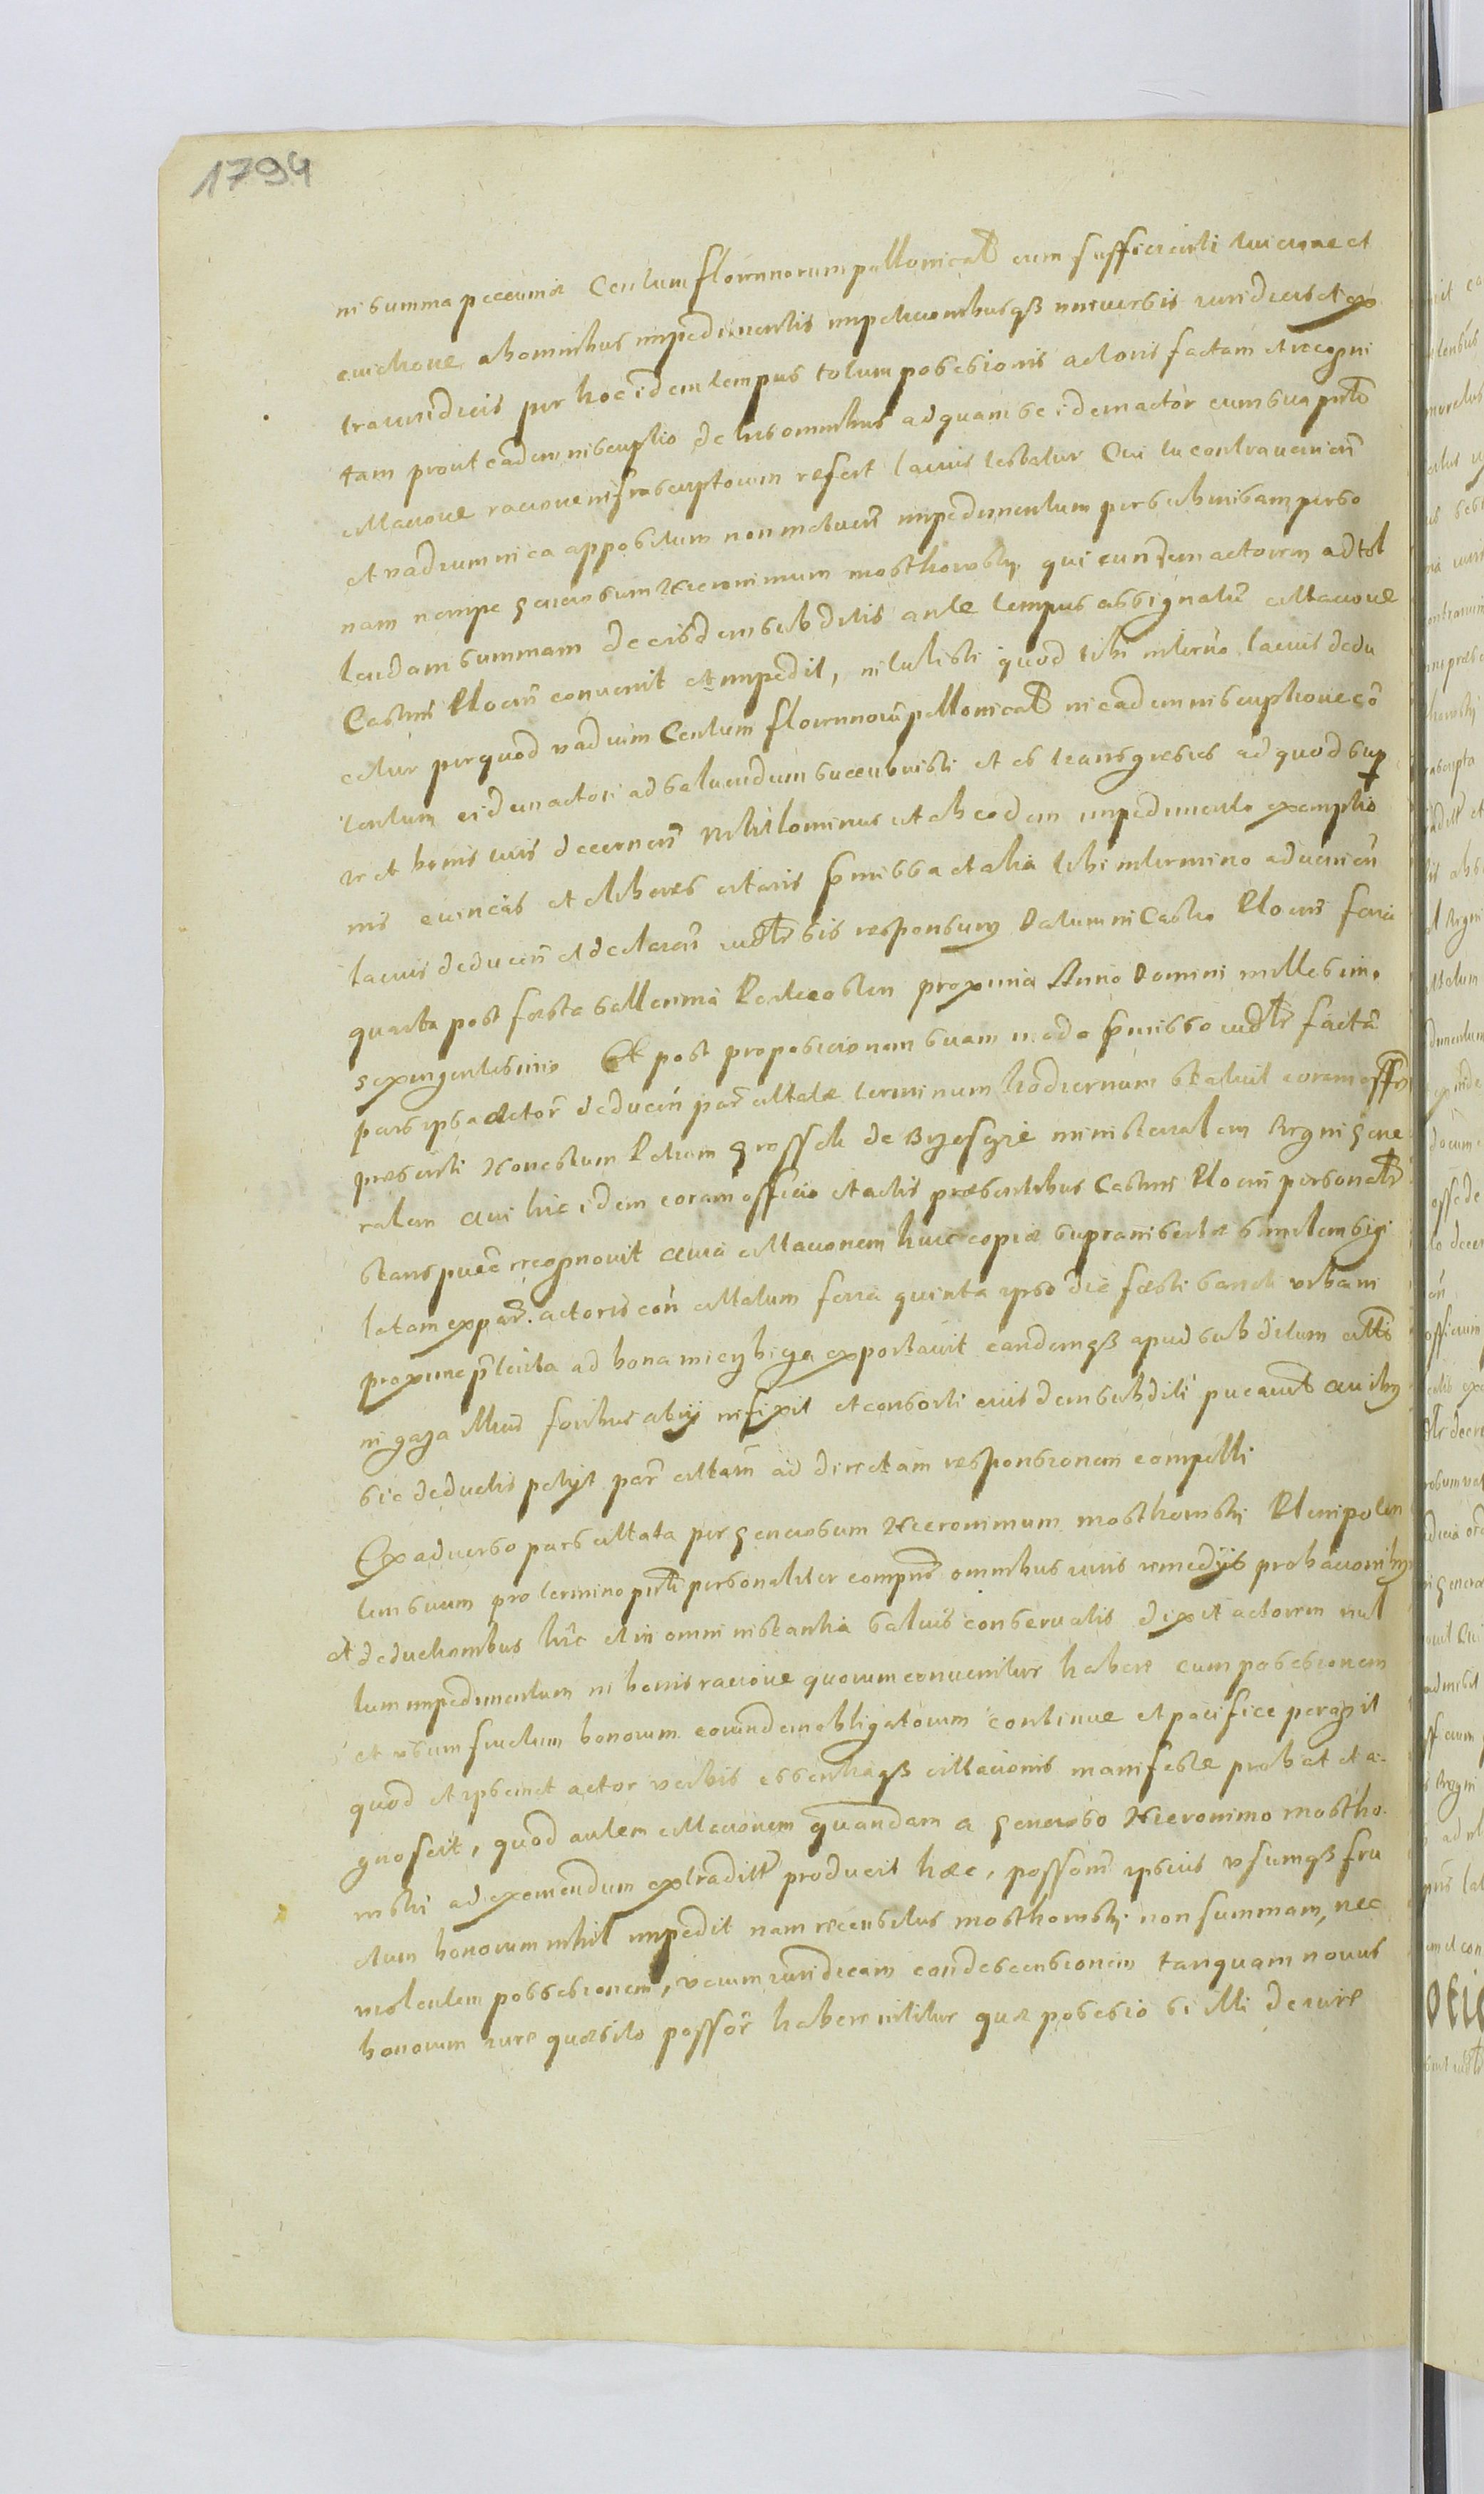 1794
in summa pecuniæ Centum florennorum pollonical cum sufficienti tuicione et
euictione ab omnibus impedimentis impeticionibusq3 uniuersis iuridicis et ex
traiuridicis per hoc idem tempus totum possessionis actoris factam et recogni
tam prout eadem inscriptio de his omnibus ad quam se idem actor cum sua pnti
cittacione racione infrascriptorum refert lacius testatur Qui tu contraueniens
et vadium in ea appositum non metuens impedimentum per submissam perso
nam nempe generosum Hieronimum mosthowsky qui eundem actorem ad tol
lendam summam de eisdem subditis ante tempus assignatum cittacione
Castrens Plocens conuenit et impedit, intulisti quod tibi in termino lacius dedu
cetur per quod vadium Centum florennorum pollonical in eadem inscriptione con
tentum eidem actori ad soluendum succubuisti et es transgressus ad quod sup
te et bonis tuis decernens Nihilominus ut ab eodem impedimento exemptio
nis euincas et liberes citaris pmissa et alia tibi in termino aduenien
lacius deducen et declaran iudltr sis responsurus Datum in Castro Plocens feria
quarta post festa sollennia Pentecosten proxima Anno Domini millesimo
sexingentesimo Et post proposicionem suam modo pmisso iudltr factam
pars ipsa actor deducen par cittatæ terminum hodiernum statuit coram offo
presenti Honestum Petrum grossek de Byesgze ministerialem Regni gene
ralem Qui hic idem coram officio et actis præsentibus Castrens Plocen personaltr
stans puce recognouit Quia cittacionem huic copiæ supra insertæ similem sigi
latam ex par actoris con cittatum feria quinta ipso die festi sancti vrbani
proxime pterita ad bona miczybicza exportauit eandemq3 apud subditum citti
in gaza illius foribus abiy infixit et consorti eiusdem subditi pucauit Quibus
sic deductis petyt par cittam ad directam responsionem compelli
Ex aduerso pars cittata per generosum Hieronimum mosthowski Plenipoten
tem suum pro termino pnti personaliter compns omnibus iuris remedys probacionibus
et deductionibus hic et in omni instantia saluis conseruatis dixit actorem nul
lum impedimentum in bonis racione quorum conuenitur habere cum possessionem
et vsum fructum bonorum eorundem obligatorum continue et pacifice peragit
quod et ipsemet actor verbis essentiaq3 cittacionis manifeste probat et a-
gnoscit, quod autem cittacionem quandam a generoso Hieronimo mostho-
wski ad eximendum extraditt producit hæc, possom ipsius vsumq3 fru
ctum bonorum nihil impedit nam recensitus mosthowsky non summam, nec
violentem possessionem, verum iuridicam condescensionem tanquam nouus
bonorum iure quæsito possor habere nititur quæ possesio si illi de iure